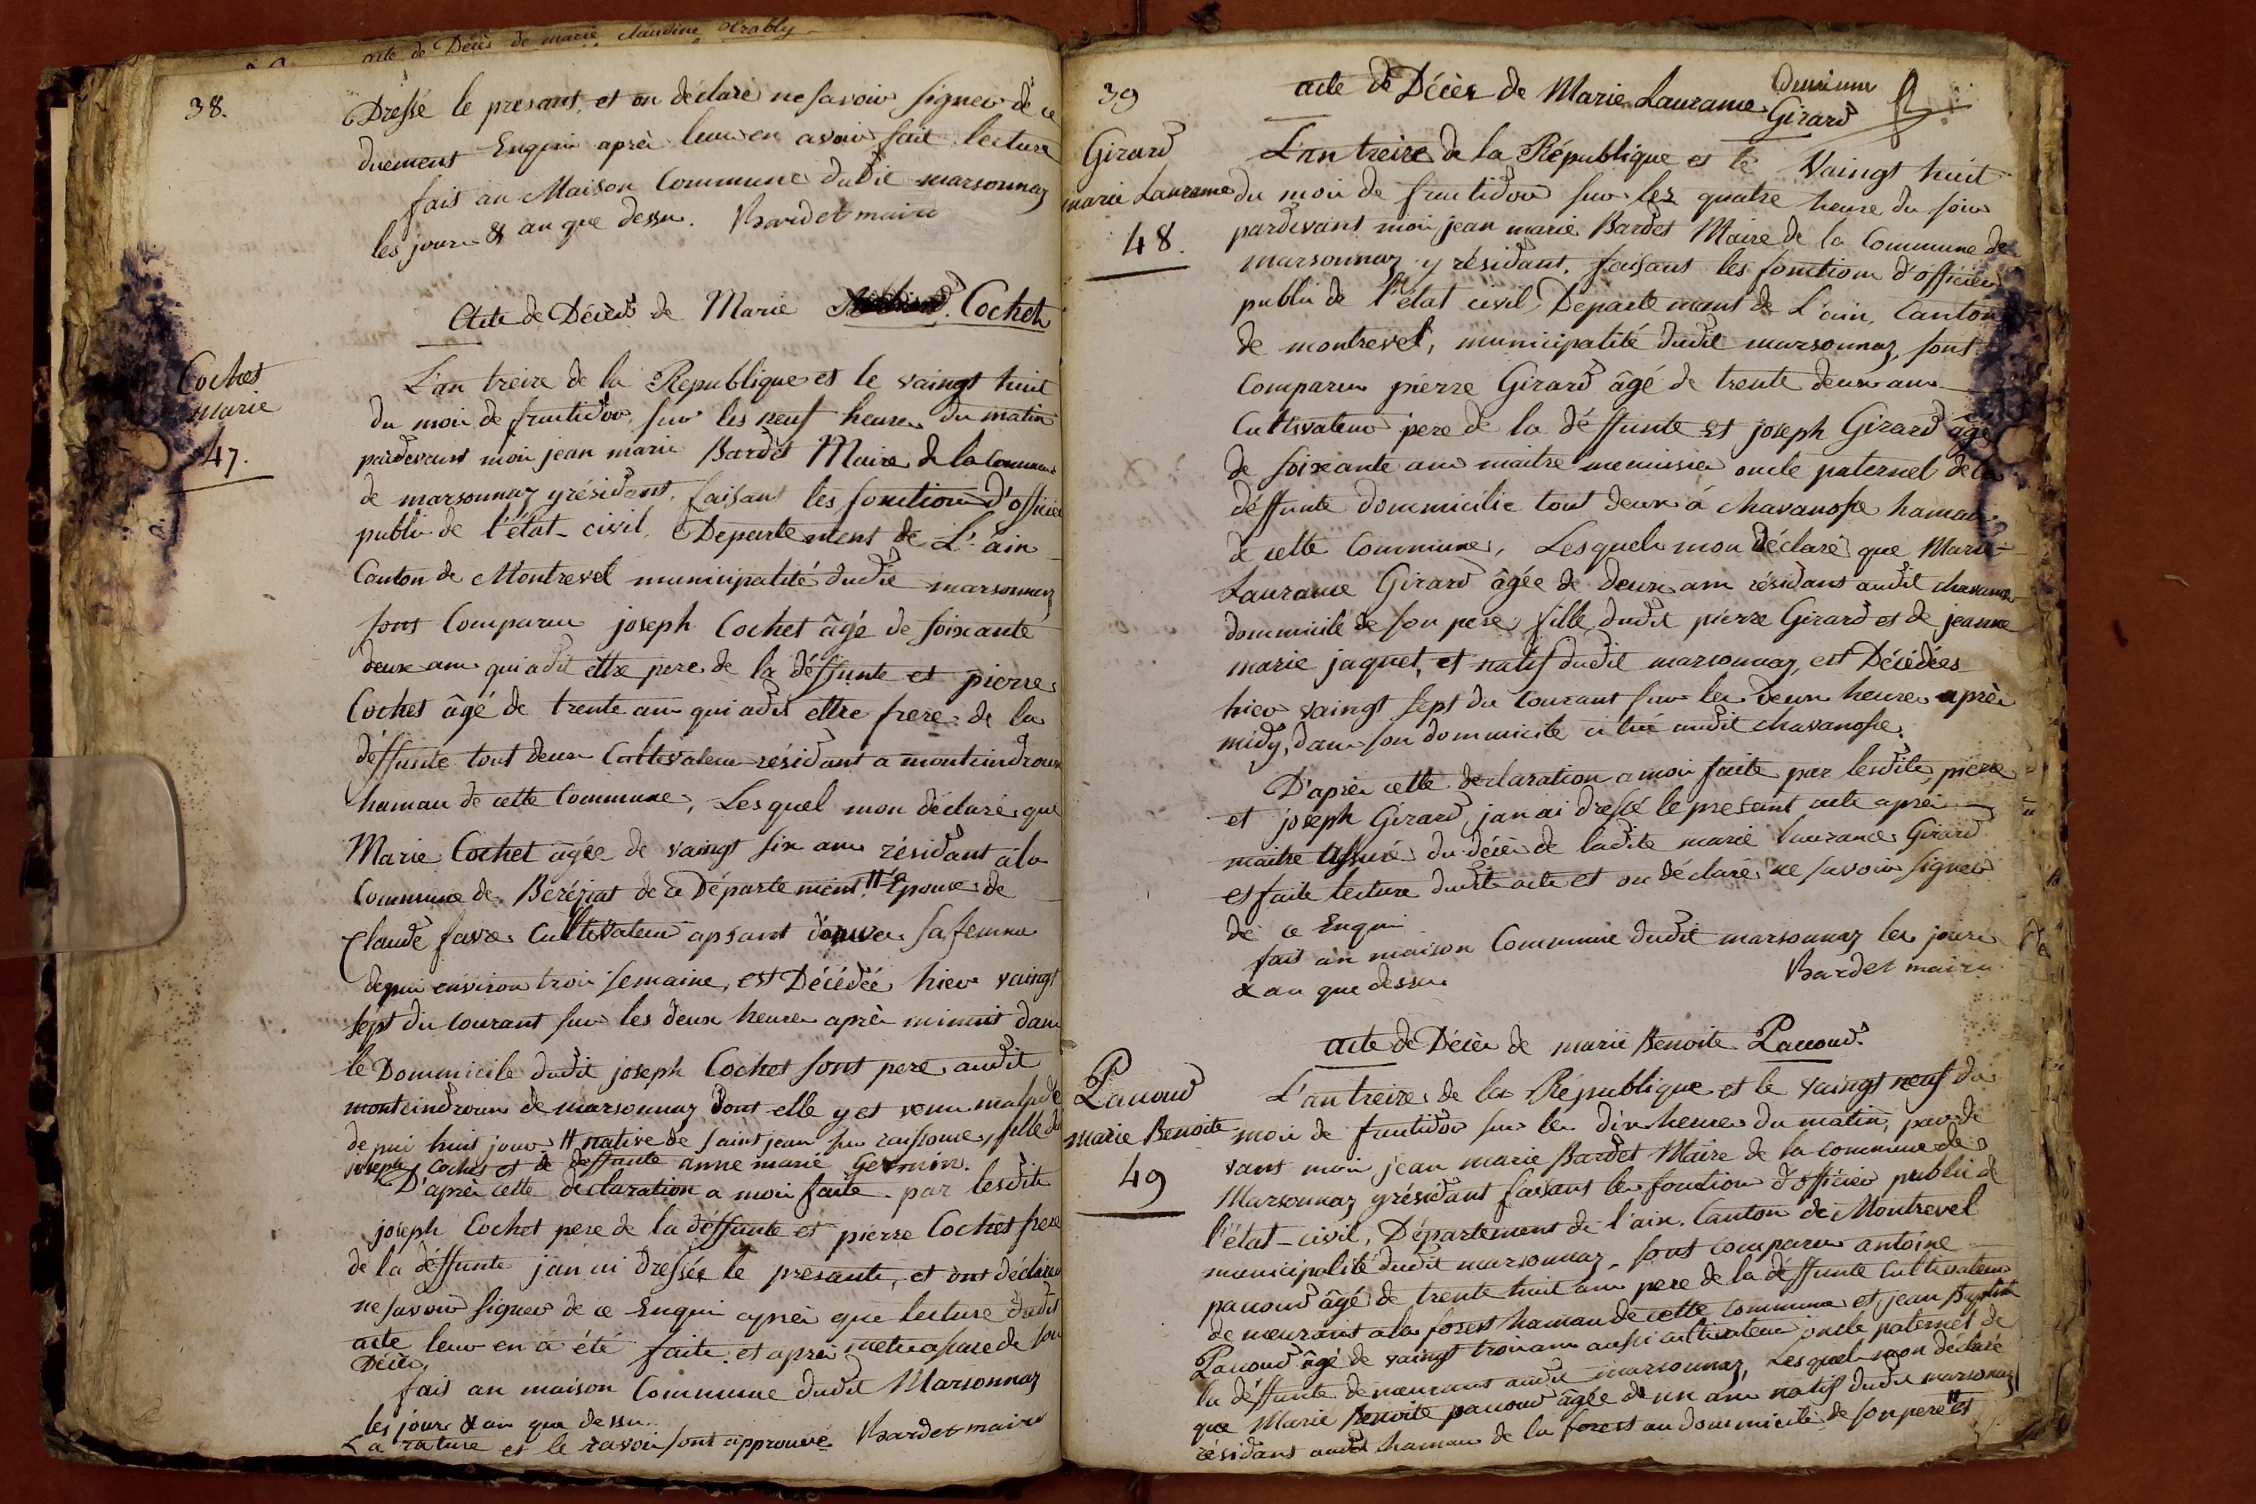 acte de Décès de marie claudine
38.
Dressé le presant, et on déclaré ne savoir signer de ce
duement Enquis après leur en avoir fait lecture
fait au Maison Commune dudit marsonnaz
les jour & an que dessu. Bardet maire
Acte de Décès de Marie Cochet
Coches
Marie
47.
L'an treize de la Republique et le vaingt huit
du moi de fructidor sur les neuf heures du matin
pardevant moi jean marie Bardet Maire de la Commune
de marsonnaz y résidant, faisant les fonction d'officier
public de l'état-civil, Departement de L'ain
Canton de Montrevel municipalité dudit marsonnaz
sont Comparu joseph Cochet âgé de soixante
deux an qui a dit ettre pere de la déffunte et pierre
Cochet âgé de trente an qui a dit ettre frere de la
déffunte tout deux Cultivateur résidant a monteindroux
hamau de cette Commune, Lesquel mon déclaré que
Marie Cochet âgée de vaingt six ans résidant à la
Commune de Béréziat de ce Département # Epouse de
Claude favre Cultivateur apsant sa femme
depui environ troi semaine, est Décédée hier vaingt
sept du courant sur les deux heure après minuit dans
le Dommicile dudit joseph Cochet sont pere audit
monteindroux de marsonnaz dont elle y est venu malade
depui huit jour # native de saint jean sur raissouse, fille de
joseph Cochet et de deffunte anne marie Germin.
D'après cette déclaration a moi faite par lesdits
joseph Cochet pere de la déffunte et pierre Cochet frere
de la déffunte jan ai Dressée le presante, et ont déclaré
ne savoir signer de ce Enqui après que lecture dudit
acte leur en a été faite et après metre asuré de son
Décès,
fait an maison Commune dudit Marsonnaz
les jour & an que dessu.
La rature et le ravoi sont approuvé Bardet maire
39
acte de Décès de Marie Laurance deuxieme
Girard
Girard
marie Laurance
48.
L'an treize de la République et le Vaingt huit
du moi de fructidor sur les quatre heure du soir
pardevant moi jean marie Bardet Maire de la Commune de
marsonnaz y résidant, faisant les fonction d'officier
public de l'état civil, Departemant de L'ain, Canton
de montrevel, municipalité dudit marsonnaz, sont
Comparu pierre Girard âgé de trente deux an
Cultivateur pere de la déffunte et joseph Girard âgé
de soixante an maitre menuisier oncle paternel de la
déffunte dommicilie tout deux à chavanosse hamau
de cette Commune, Lesquel mon déclaré que Marie
Laurance Girard âgée de deux an résidant audit chavanosse
dommicile de son pere, fille dudit pierre Girard et de jeanne
marie jaquet, et natif dudit marsonnaz, est Décédées
hier vaingt sept du courant sur les deux heure après
midy, dans son dommicile citué audit chavanosse.
D'après cette déclaration a moi faite par lesdits pierre
et joseph Girard, jan ai dressé le presant acte après
maitre assuré du décès de ladite marie laurance Girard
et faite lecture dudit acte et on déclaré ne savoir signer
de ce Enqui
fait an maison Commune dudit marsonnaz les jour
& an que dessu Bardet maire
acte de Décès de marie Benoite Pacoud.
Pacoud
marie Benoite
49
L'an treize de la République et le vaingt neuf du
moi de fructidor sur les dix heure du matin, parde
vant moi jean marie Bardet Maire de la commune de
Marsonnaz y résidant faisant les fonction d'officier public de
l'état-civil, Département de l'ain, Canton de Montrevel
municipalité dudit marsonnaz, sont comparu antoine
pacoud âgé de trente huit an pere de la déffunte Cultivateur
demeurant a la forest hamau de cette commune et jean Baptiste
Pacoud âgé de vaingt troi an aussi cultivateur oncle paternel de
la déffunte demeurant audit marsonnaz, Lesquel mon déclaré
que Marie Benoite pacoud âgée de un an natif dudit marsonnaz
résidant audit hamau de la forest au dommicile de son pere # et